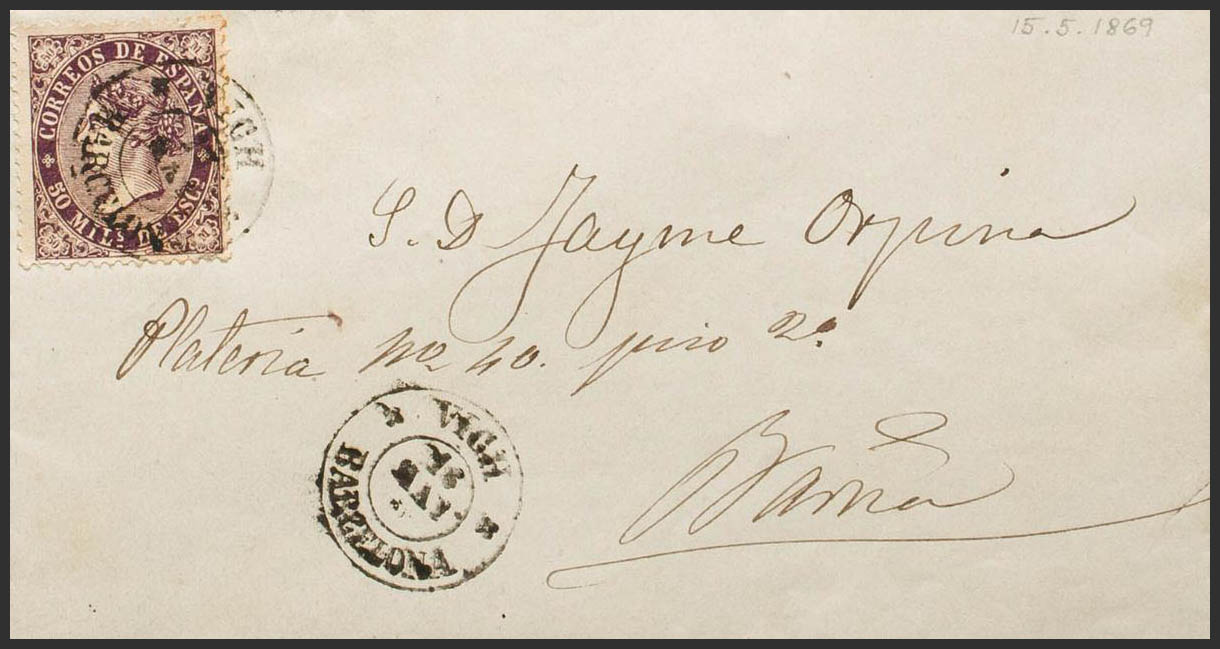 15.5.1869
CORREOS DE ESPAÑA
50 MILS DE ESCO
VICH
BARCELONA
S. D Jayme Orpina
Plateria no 40. piso 2º
Barna
VICH
MAY
BARCELONA